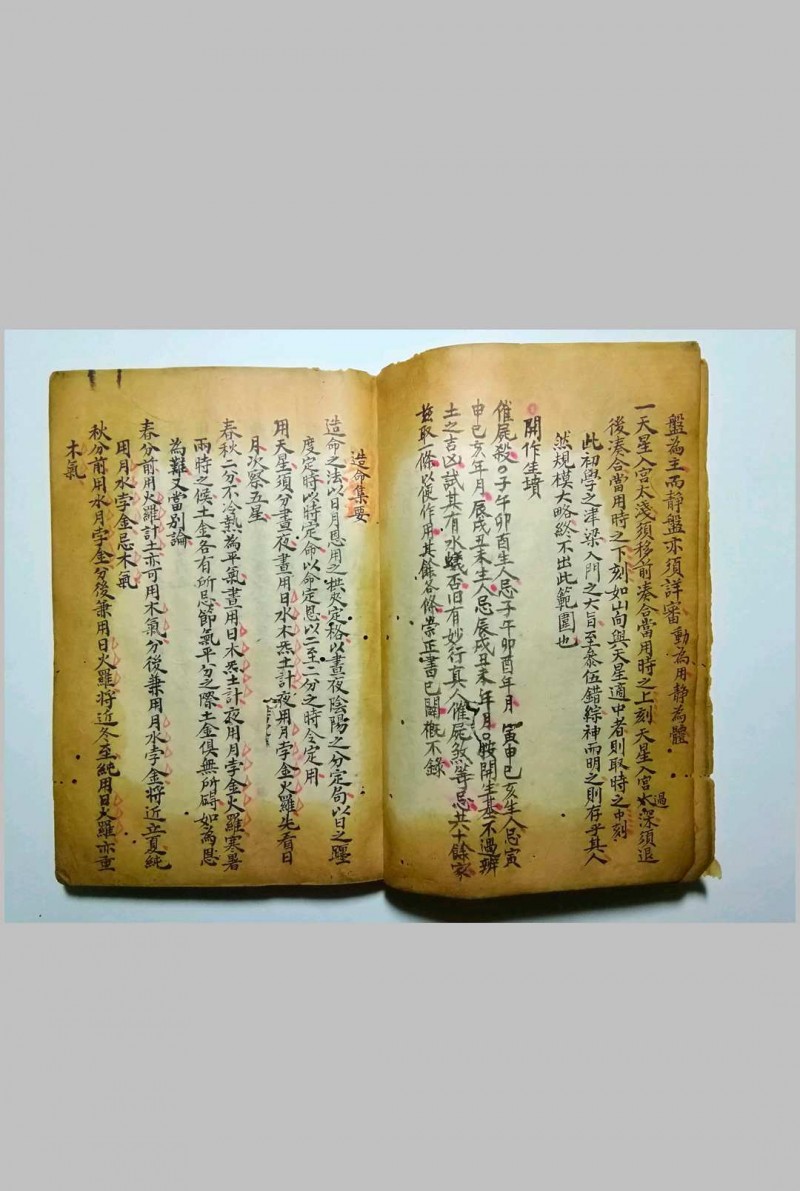 盤為主而靜盤亦須詳審動為用靜為體
一天星入宮太淺須移前湊合當用時之上刻天星入宮過深須退
後湊合當用時之下刻如山向與天星適中者則取時之中刻
此初學之津梁入門之大旨至叅伍錯綜神而明之則存乎其人
然規模大略終不出此範圍也
開作生墳
催屍殺子午卯酉生人忌子午卯酉年月寅申巳亥生人忌寅
申巳亥年月辰戌丑未生人忌辰戌丑未年月開生基不過辨
土之吉凶試其有水蟻否旧有妙行真人催屍煞等忌共十餘家
茲取一條以便作用其餘各條崇正書已闢概不錄
造命集要
造命之法以日月恩用之拱夾定格以晝夜陰陽之分定局以日之躔
度定時以時定命以命定恩以二至二分之時令定用
用天星須分晝夜晝用日水木炁土計夜用月孛金火羅先看日
月次察五星
春秋二分不冷熱為平氣晝用日木炁土計夜用月孛金火羅寒暑
兩時之候土金各有所忌節氣平匀之際土金俱無所碍如為恩
為難又當別論
春分前用火羅計土亦可用木氣分後兼用月水孛金將近立夏純
用月水孛金忌木氣
秋分前用水月孛金分後兼用日火羅將近冬至純用日火羅亦重
木氣